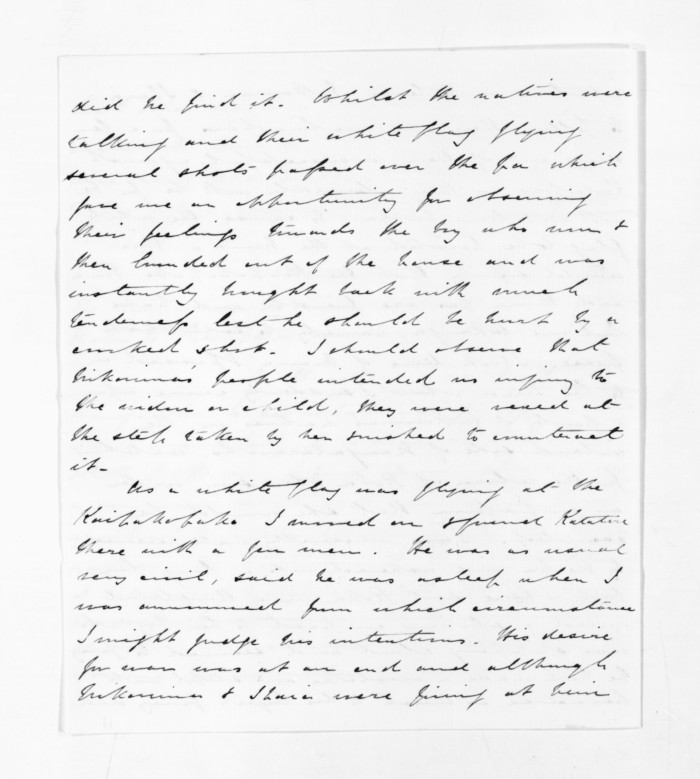 did he find it. Whilst the natives were
talking and their white flag flying
several shots passed over the pa which
gave me an opportunity for observing
their feelings towards the boy who now &
then bounded out of the house and was
instantly brought back with much
tenderness lest he should be hurt by a
crooked shot. I should observe that
people intended no injury to
the widow or child, they were vexed at
the step taken by her & wished to counteract
it.
As a white flag was flying at the
Kaipakopako I moved on & found Katatore
there with a few men. He was as usual
very civil, said he was asleep when I
was announced from which circumstance
I might judge his intentions. His desire
for war was at an end and although
& Ihaia were firing at him